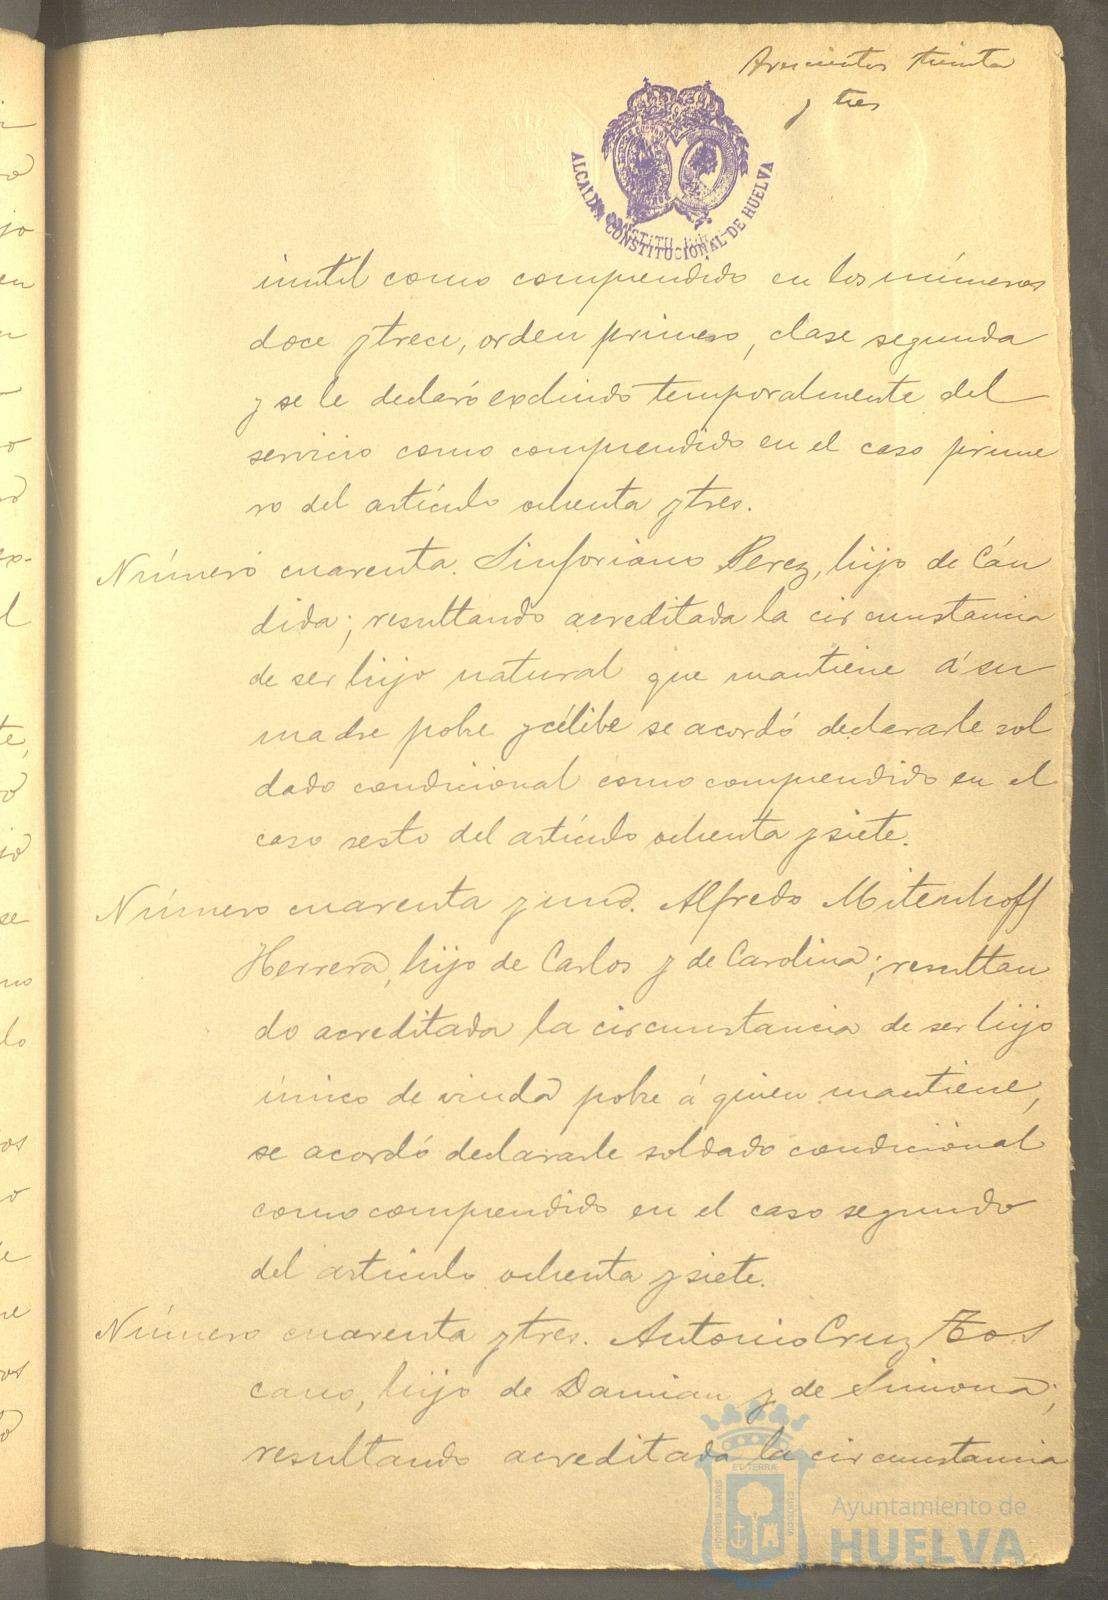 Trescientos treinta
y tres
ALCALDIA CONSTITUCIONAL DE HUELVA
inutil como comprendido en los números
doce y trece, orden primero, clase segunda
y se le declaró excluido temporalmente del
servicio como comprendido en el caso prime
ro del artículo ochenta y tres.
Número cuarenta. Sinforiano Perez, hijo de Cán
dida; resultando acreditada la circunstancia
de ser hijo natural que mantiene á su
madre pobre y célibe se acordó declararle sol
dado condicional como comprendido en el
caso sesto del artículo ochenta y siete.
Número cuarenta y uno. Alfredo Mitenhoff
Herrera, hijo de Carlos y de Carolina; resultan
do acreditada la circunstancia de ser hijo
único de viuda pobre á quien mantiene,
se acordó declararle soldado condicional
como comprendido en el caso segundo
del artículo ochenta y siete.
Número cuarenta y tres. Antonio Cruz Tos
cano, hijo de Damian y de Simona;
resultando acreditada la circunstancia
PORTUS MARIS ET TERRÆ CUSTODIA
Ayuntamiento de
HUELVA